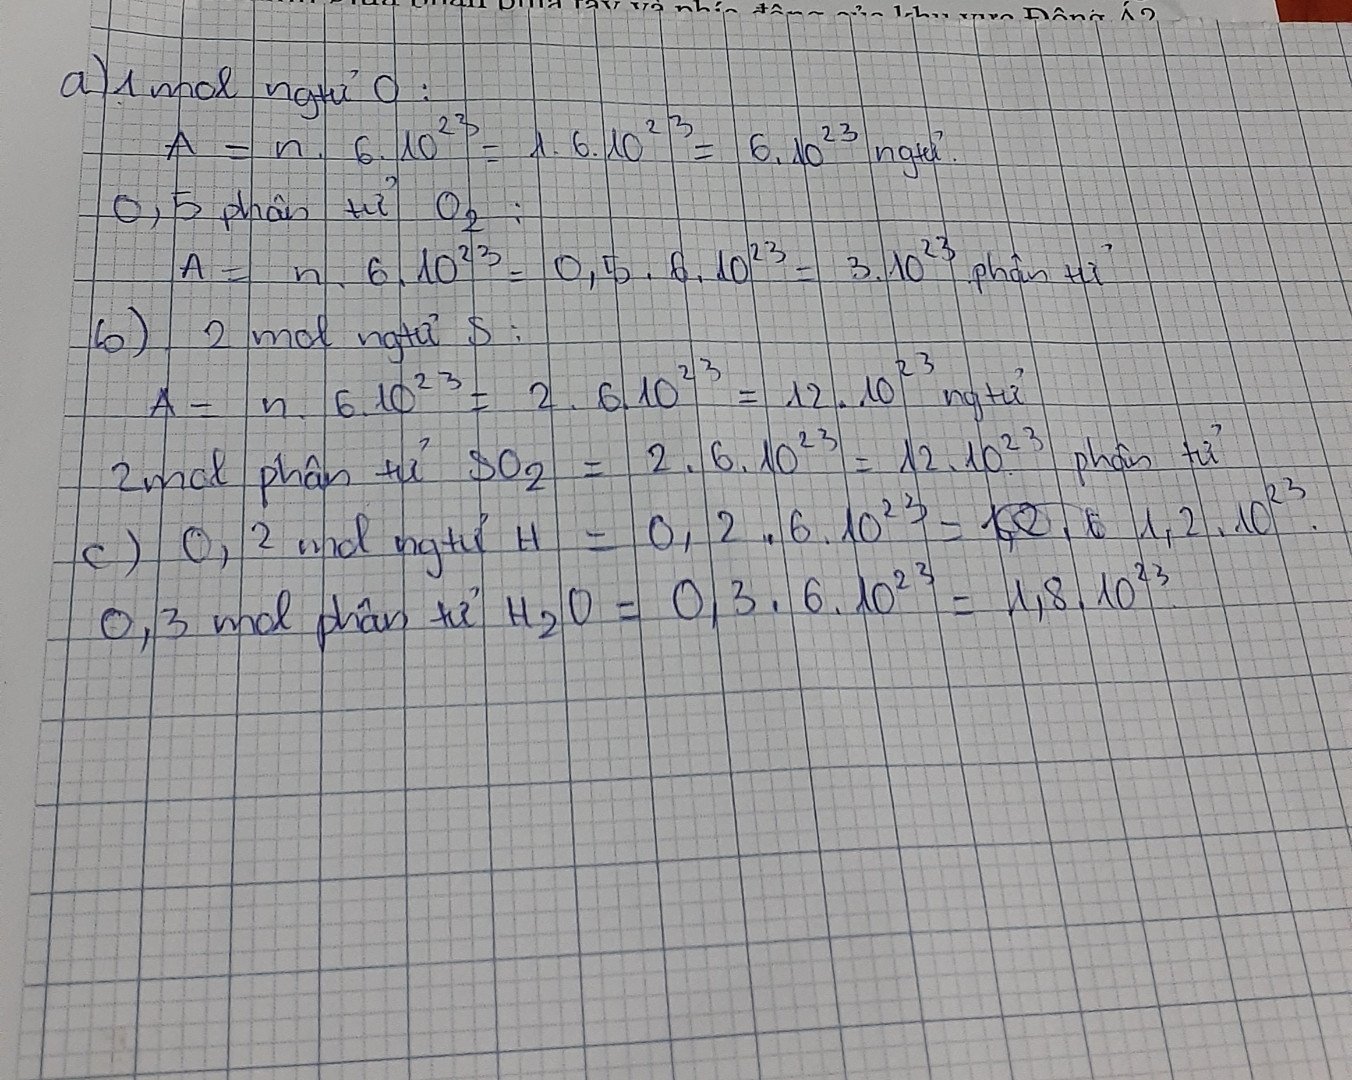 a) 1 mol ngtử O :
A = n. 6.10²³ = 1. 6.10²³ = 6.10²³ ngtử.
0,5 phân tử O₂ :
A = n. 6.10²³ = 0,5. 6.10²³ = 3.10²³ phân tử
b) 2 mol ngtử S :
A = n. 6.10²³ = 2. 6.10²³ = 12.10²³ ngtử
2 mol phân tử SO₂ = 2. 6.10²³ = 12.10²³ phân tử
c) 0,2 mol ngtử H = 0,2. 6.10²³ = 1,2.10²³.
0,3 mol phân tử H₂O = 0,3. 6.10²³ = 1,8.10²³.